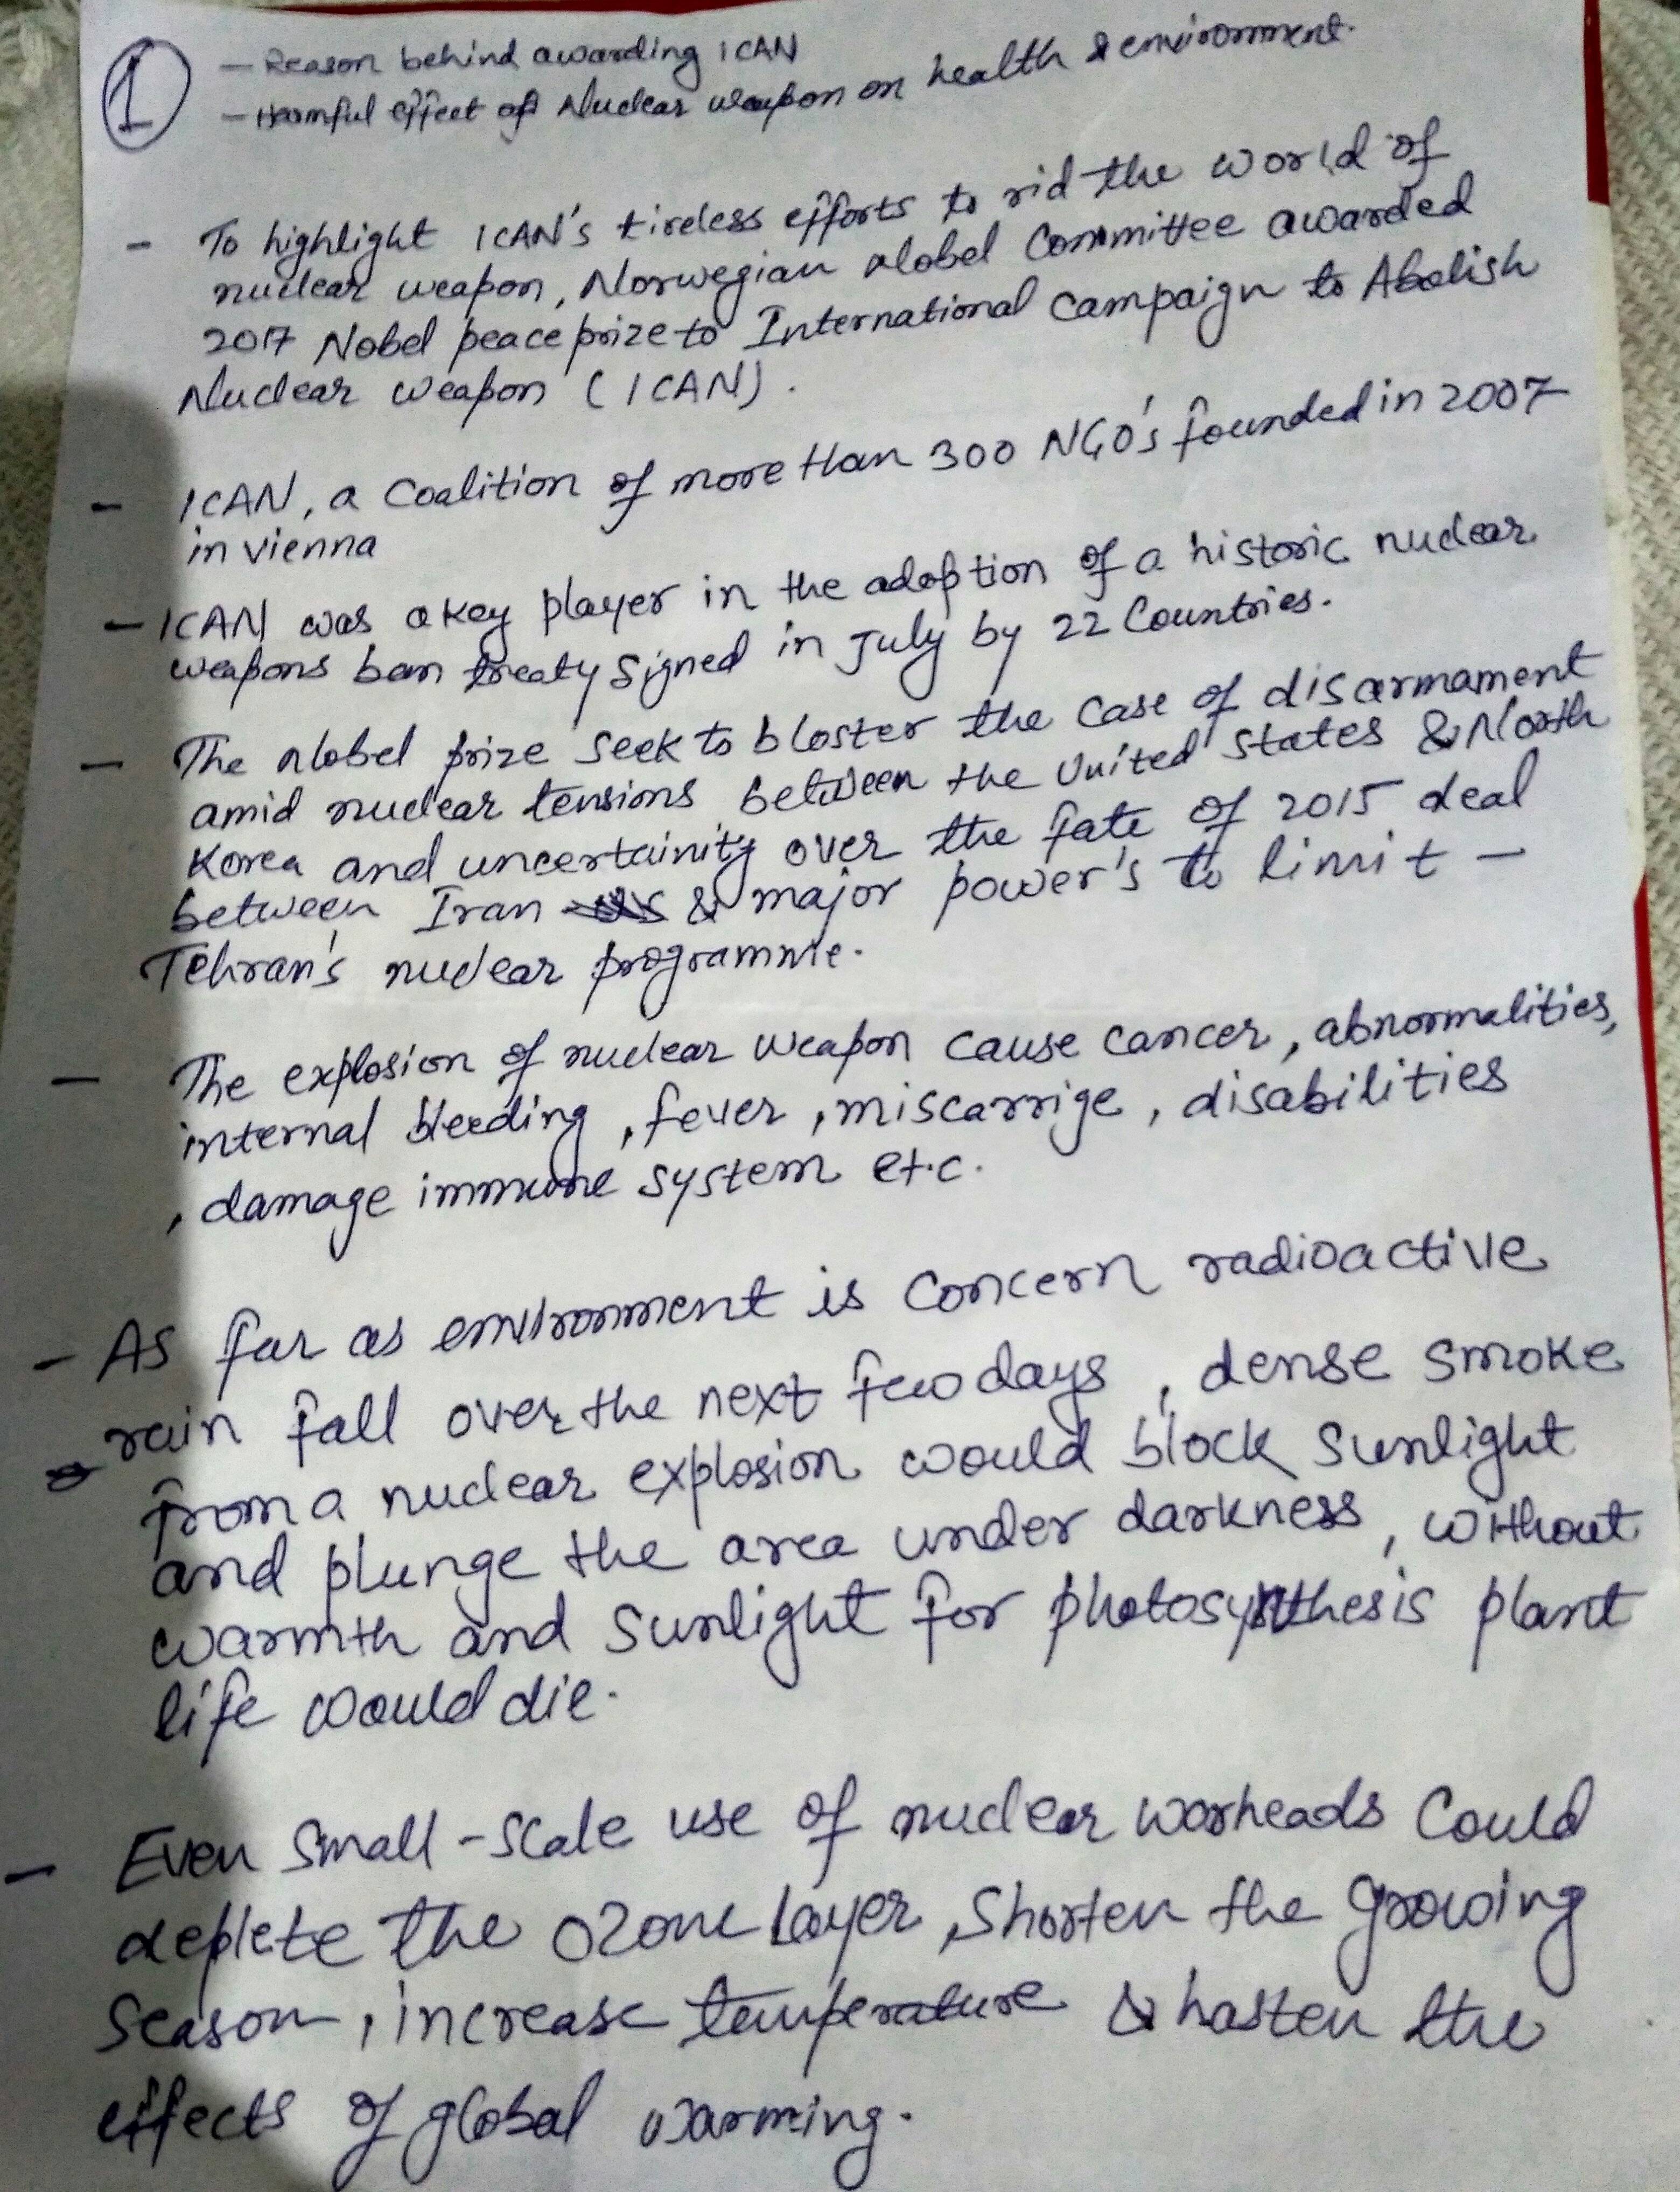 1
— Reason behind awarding ICAN
— Harmful effect of Nuclear weapon on health & environment.
- To highlight ICAN's tireless efforts to rid the world of
nuclear weapon, Norwegian Nobel Committee awarded
2017 Nobel peace prize to International campaign to Abolish
Nuclear weapon (ICAN).
- ICAN, a Coalition of more than 300 NGO's founded in 2007
in vienna
- ICAN was a key player in the adoption of a historic nuclear
weapons ban treaty signed in July by 22 Countries.
- The Nobel prize seek to bloster the case of disarmament
amid nuclear tensions between the United States & North
Korea and uncertainity over the fate of 2015 deal
between Iran & major power's to limit -
Tehran's nuclear programme.
- The explosion of nuclear weapon cause cancer, abnormalities,
internal bleeding, fever, miscarrige, disabilities
, damage immune system etc.
- As far as environment is concern radioactive
rain fall over the next few days, dense smoke
from a nuclear explosion would block sunlight
and plunge the area under darkness, without
warmth and sunlight for photosynthesis plant
life would die.
- Even small-scale use of nuclear warheads could
deplete the ozone layer, shorten the growing
season, increase temperature & hasten the
effects of global warming.